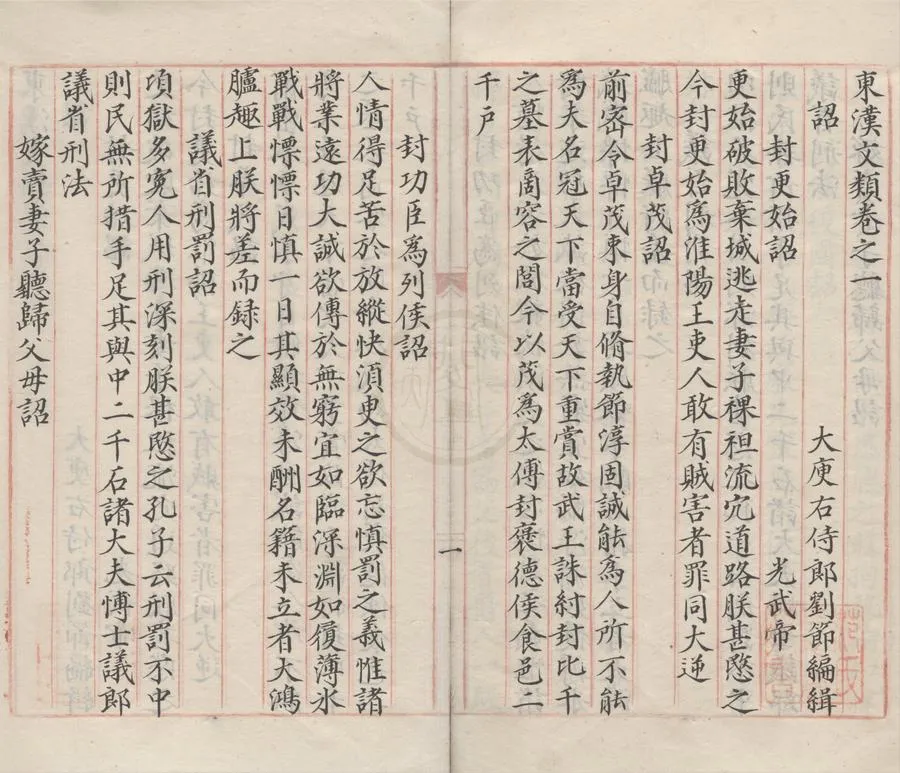 東漢文類卷之一
大庾右侍郎劉節編緝
詔
封更始詔 光武帝
更始破敗棄城逃走妻子裸袒流宂道路朕甚愍之
今封更始為淮陽王吏人敢有賊害者罪同大逆
封卓茂詔
前宻令卓茂束身自脩執節淳固誠能為人所不能
為夫名冠天下當受天下重賞故武王誅紂封比干
之墓表商容之閭今以茂為太傅封褒德侯食邑二
千户
封功臣為列侯詔
人情得足苦於放縱快湏臾之欲忘慎罰之義惟諸
將業遠功大誠欲傳於無窮宜如臨深淵如履薄氷
戰戰慄慄日慎一日其顯效未酬名籍未立者大鴻
臚趣上朕將差而録之
議省刑罰詔
項獄多寃人用刑深刻朕甚愍之孔子云刑罰不中
則民無所措手足其與中二千石諸大夫愽士議郎
議省刑法
嫁賣妻子聽歸父母詔
一